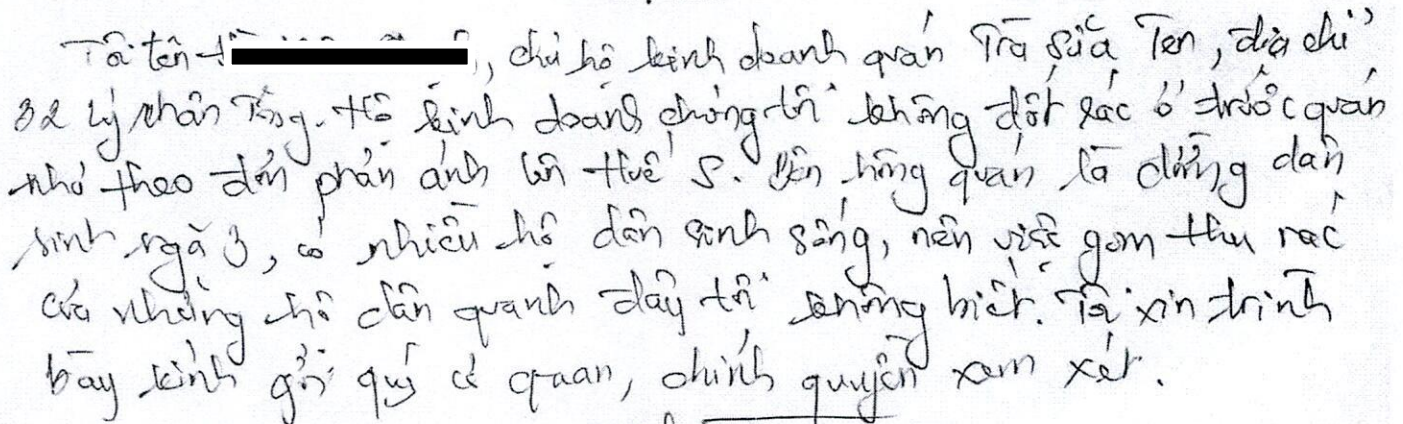 Tôi tên, chủ hộ kinh doanh quán Trà Sữa Ten, địa chỉ
32 Lý Nhân Tông. Hộ kinh doanh chúng tôi không đốt rác ở trước quán
như theo đơn phản ánh lên Huế S. Bên hông quán là đường dân
sinh ngã 3, có nhiều hộ dân sinh sống, nên việc gom thu rác
của những hộ dân quanh đây tôi không biết. Tôi xin trình
bày kính gửi quý cơ quan, chính quyền xem xét.